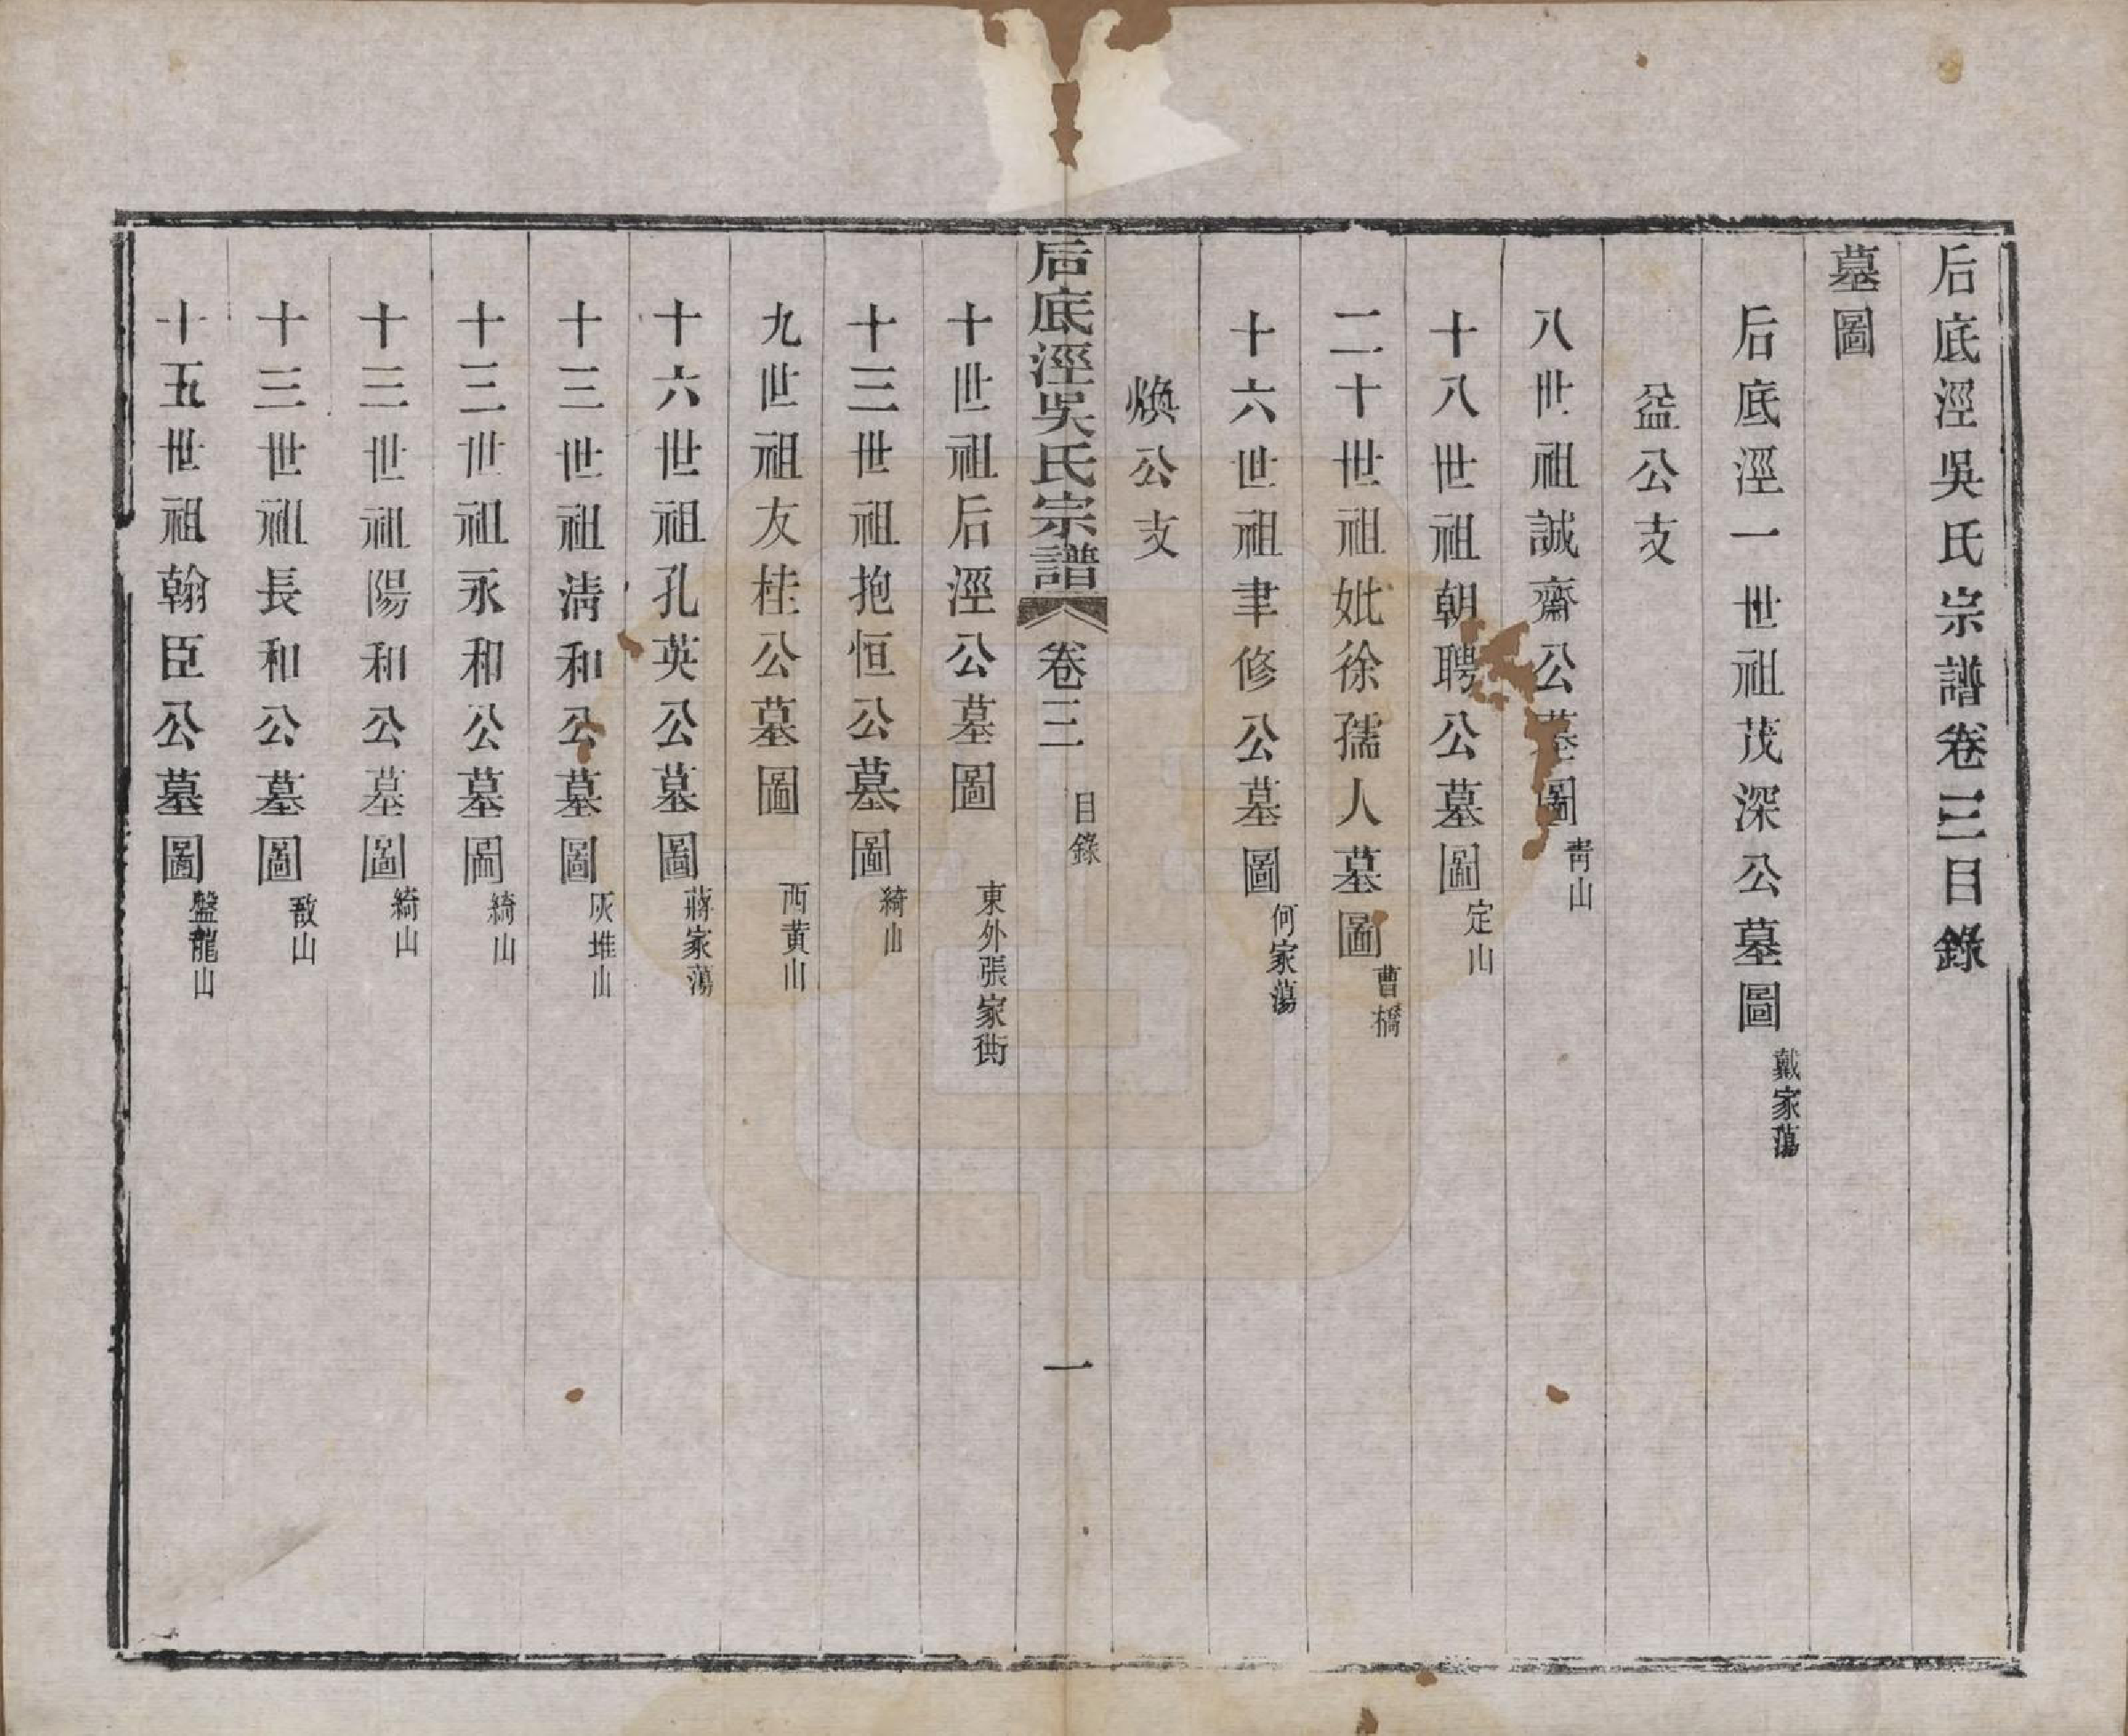 后底涇吳氏宗譜卷三目錄
墓圖
后底涇一世祖茂深公墓圖 戴家蕩
盆公支
八世祖誠齋公墓圖 靑山
十八世祖朝聘公墓圖 定山
二十世祖妣徐孺人墓圖 曹橋
十六世祖聿修公墓圖 何家蕩
煥公支
后底涇吳氏宗譜 卷三 目錄 一
十世祖后涇公墓圖 東外張家衖
十三世祖抱恒公墓圖 綺山
九世祖友桂公墓圖 西黃山
十六世祖孔英公墓圖 蔣家蕩
十三世祖淸和公墓圖 灰堆山
十三世祖永和公墓圖 綺山
十三世祖陽和公墓圖 綺山
十三世祖長和公墓圖 敔山
十五世祖翰臣公墓圖 盤龍山